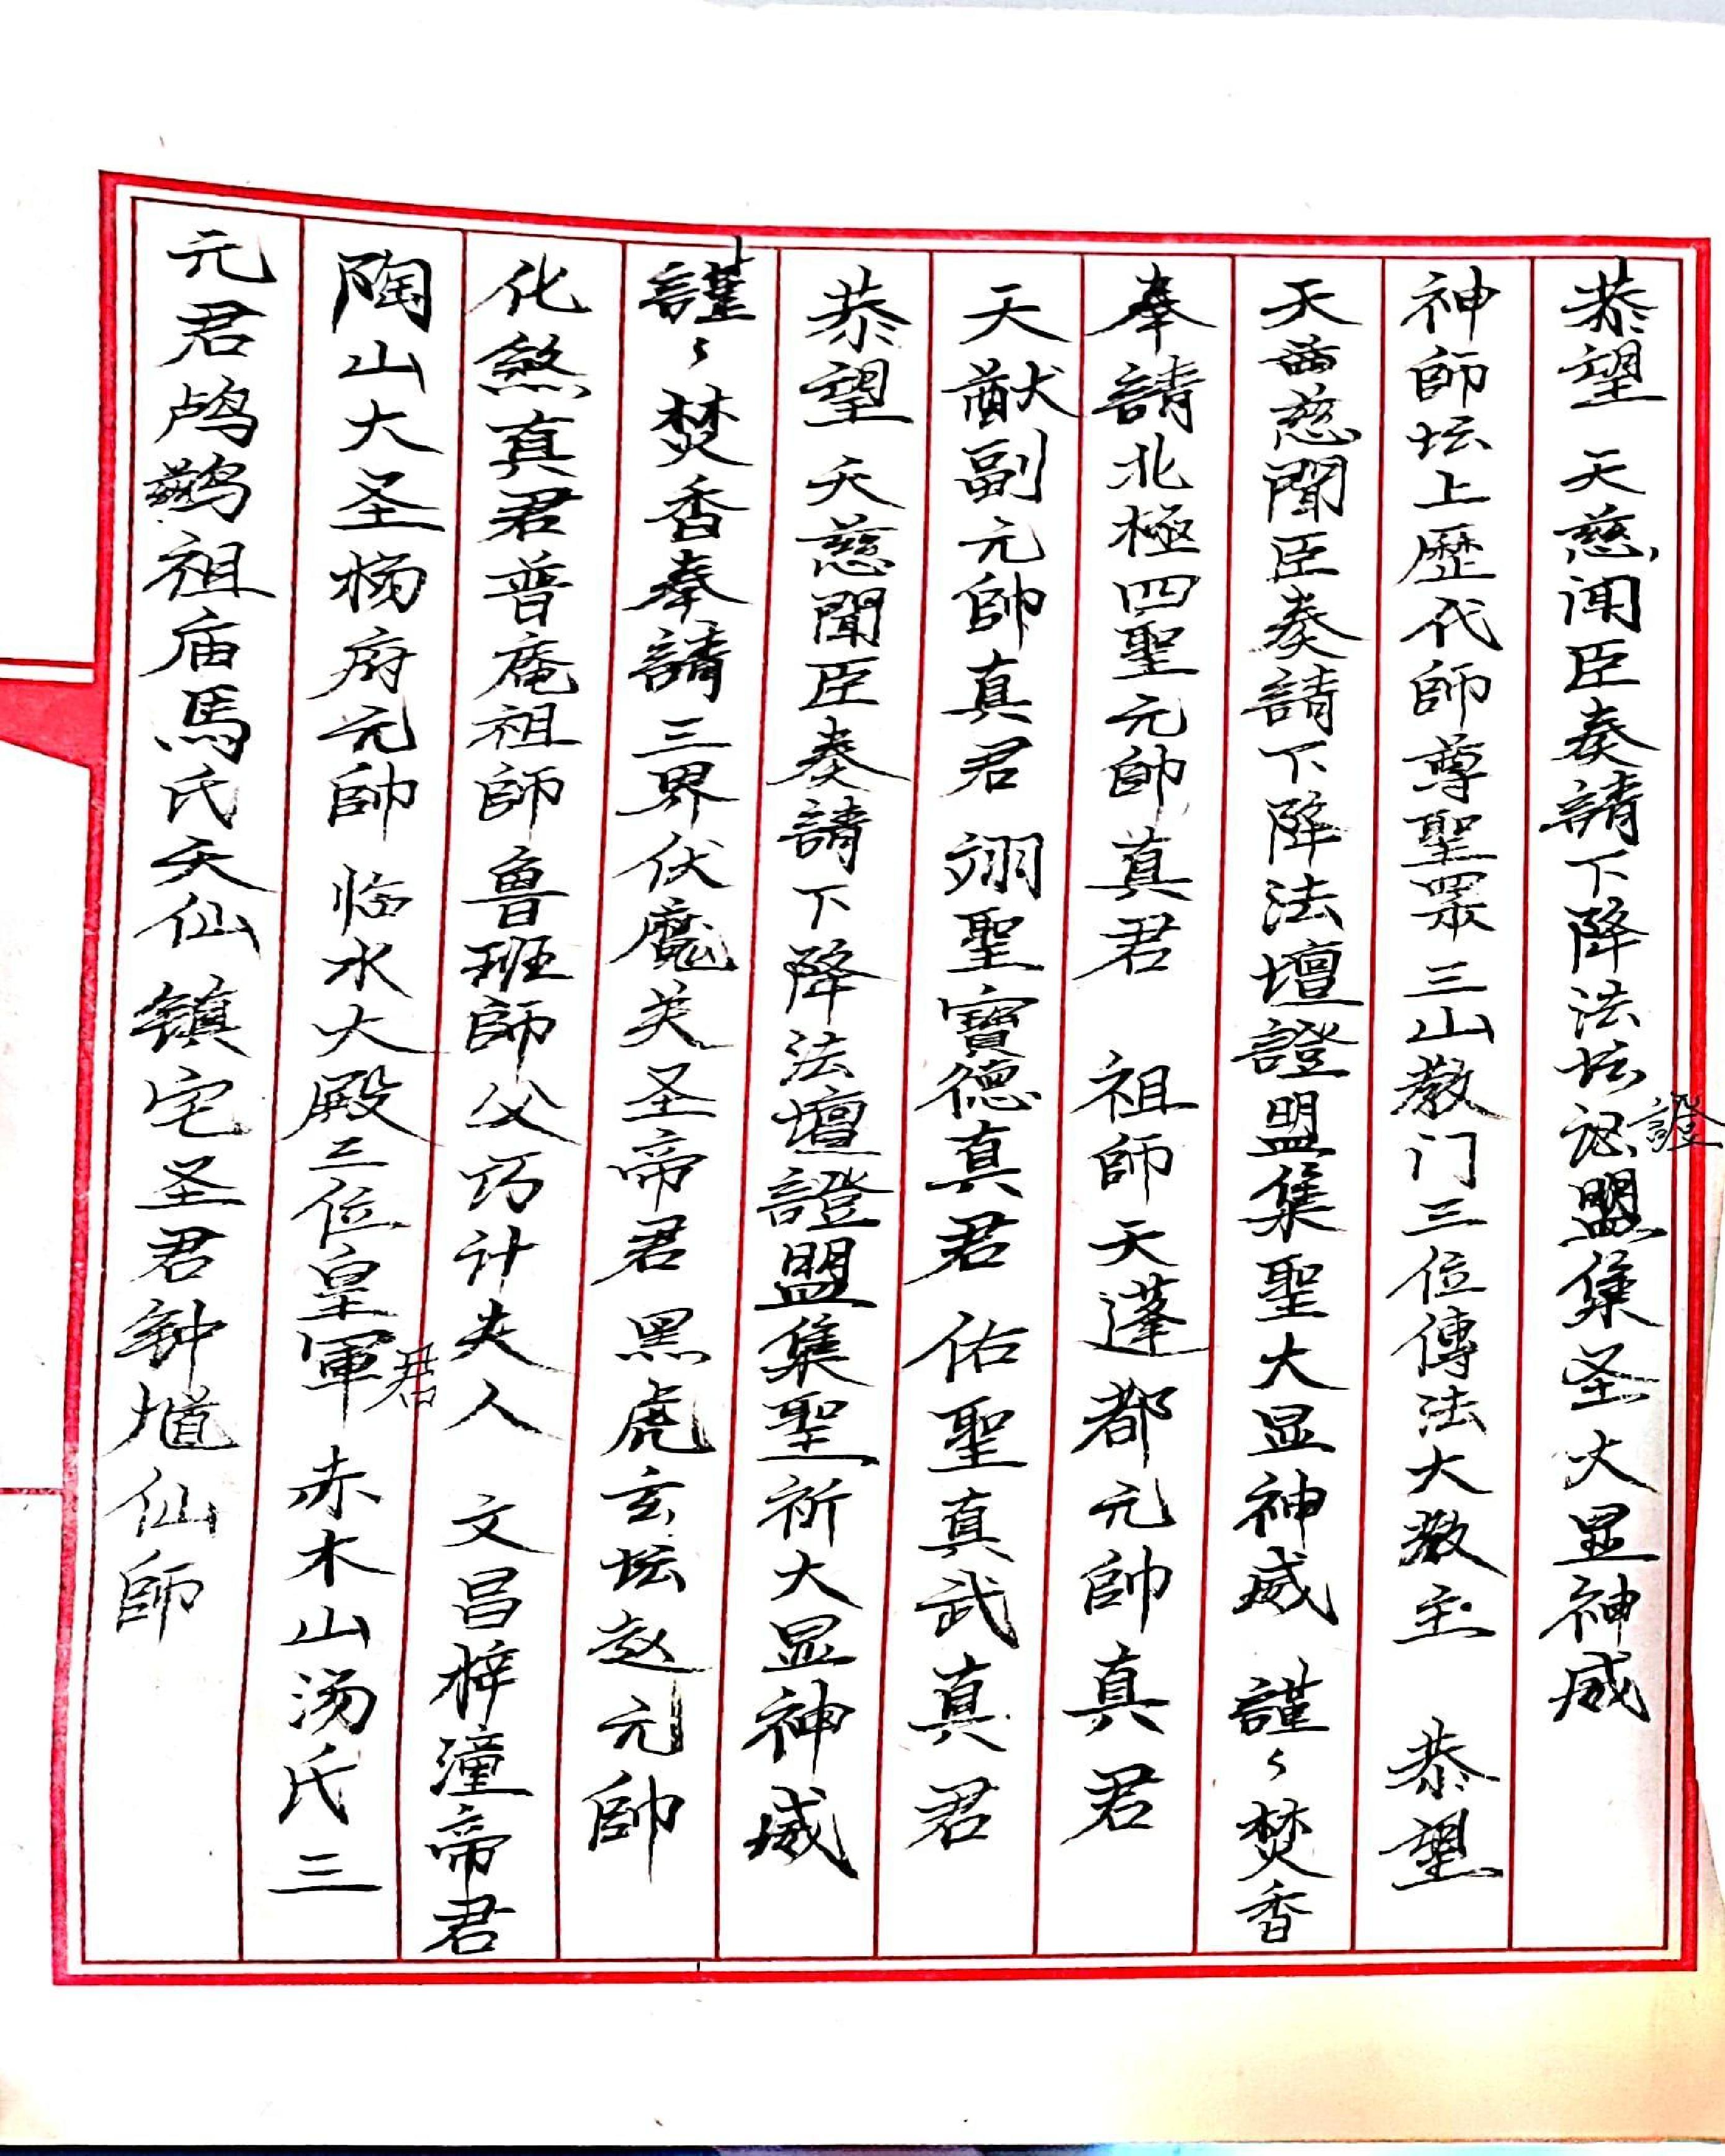 恭望　天慈闻臣奏請下降法坛認盟集圣大显神威
證
神師坛上歷代師尊聖眾三山教门三位傳法大教主　恭望
天慈聞臣奏請下降法壇證盟集聖大显神威　謹〻焚香
奉請北極四聖元帥真君　祖師天蓬都元帥真君
天猷副元帥真君　翊聖寶德真君　佑聖真武真君
恭望　天慈聞臣奏請下降法壇證盟集聖祈大显神威
謹〻焚香奉請三界伏魔关圣帝君　黑虎玄坛赵元帥
化煞真君普庵祖師魯班師父巧计夫人　文昌梓潼帝君
陶山大圣杨府元帥　临水大殿三位皇軍　赤木山汤氏三
君
元君鸬鹚祖庙馬氏天仙　镇宅圣君钟馗仙師